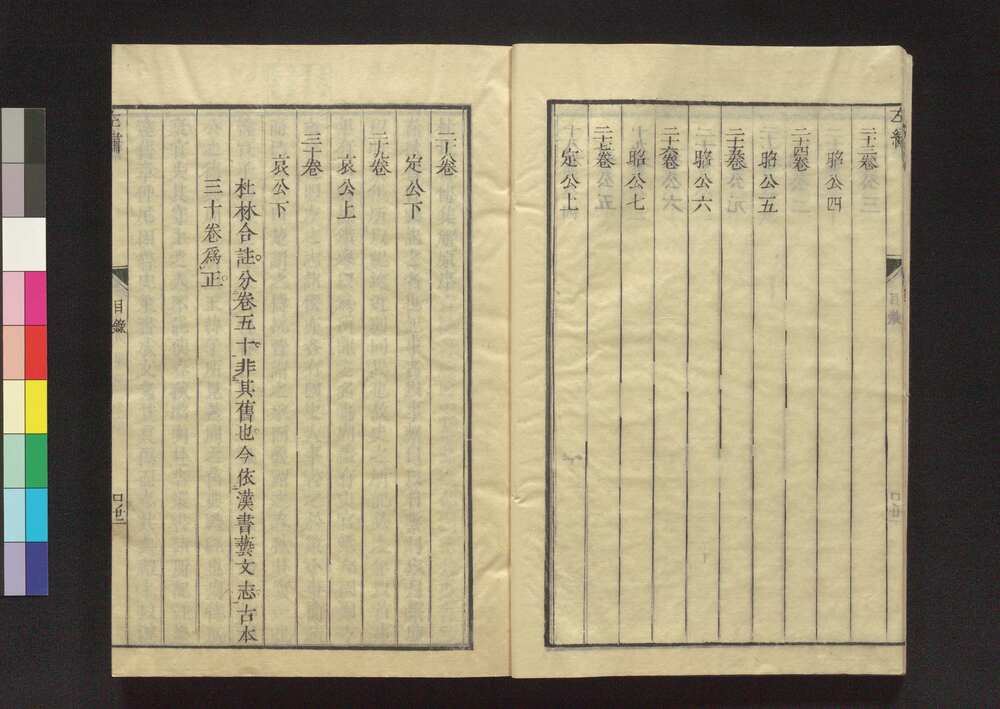 左繡
二十三卷
昭公四
二十四卷
昭公五
二十五卷
昭公六
二十六卷
昭公七
二十七卷
定公上
二十八卷
定公下
二十九卷
哀公上
三十卷
哀公下
杜林合註分卷五十非其舊也今依漢書藝文志古本
三十卷爲正
左繡
目錄